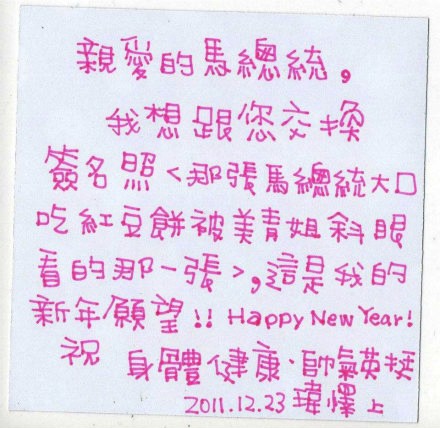 親愛的馬總統，
我想跟您交換
簽名照<那張馬總統大口
吃紅豆餅被美青姐斜眼
看的那一張>，這是我的
新年願望!! Happy New Year!
祝 身體健康、帥氣英挺
2011.12.23 瑋懌上